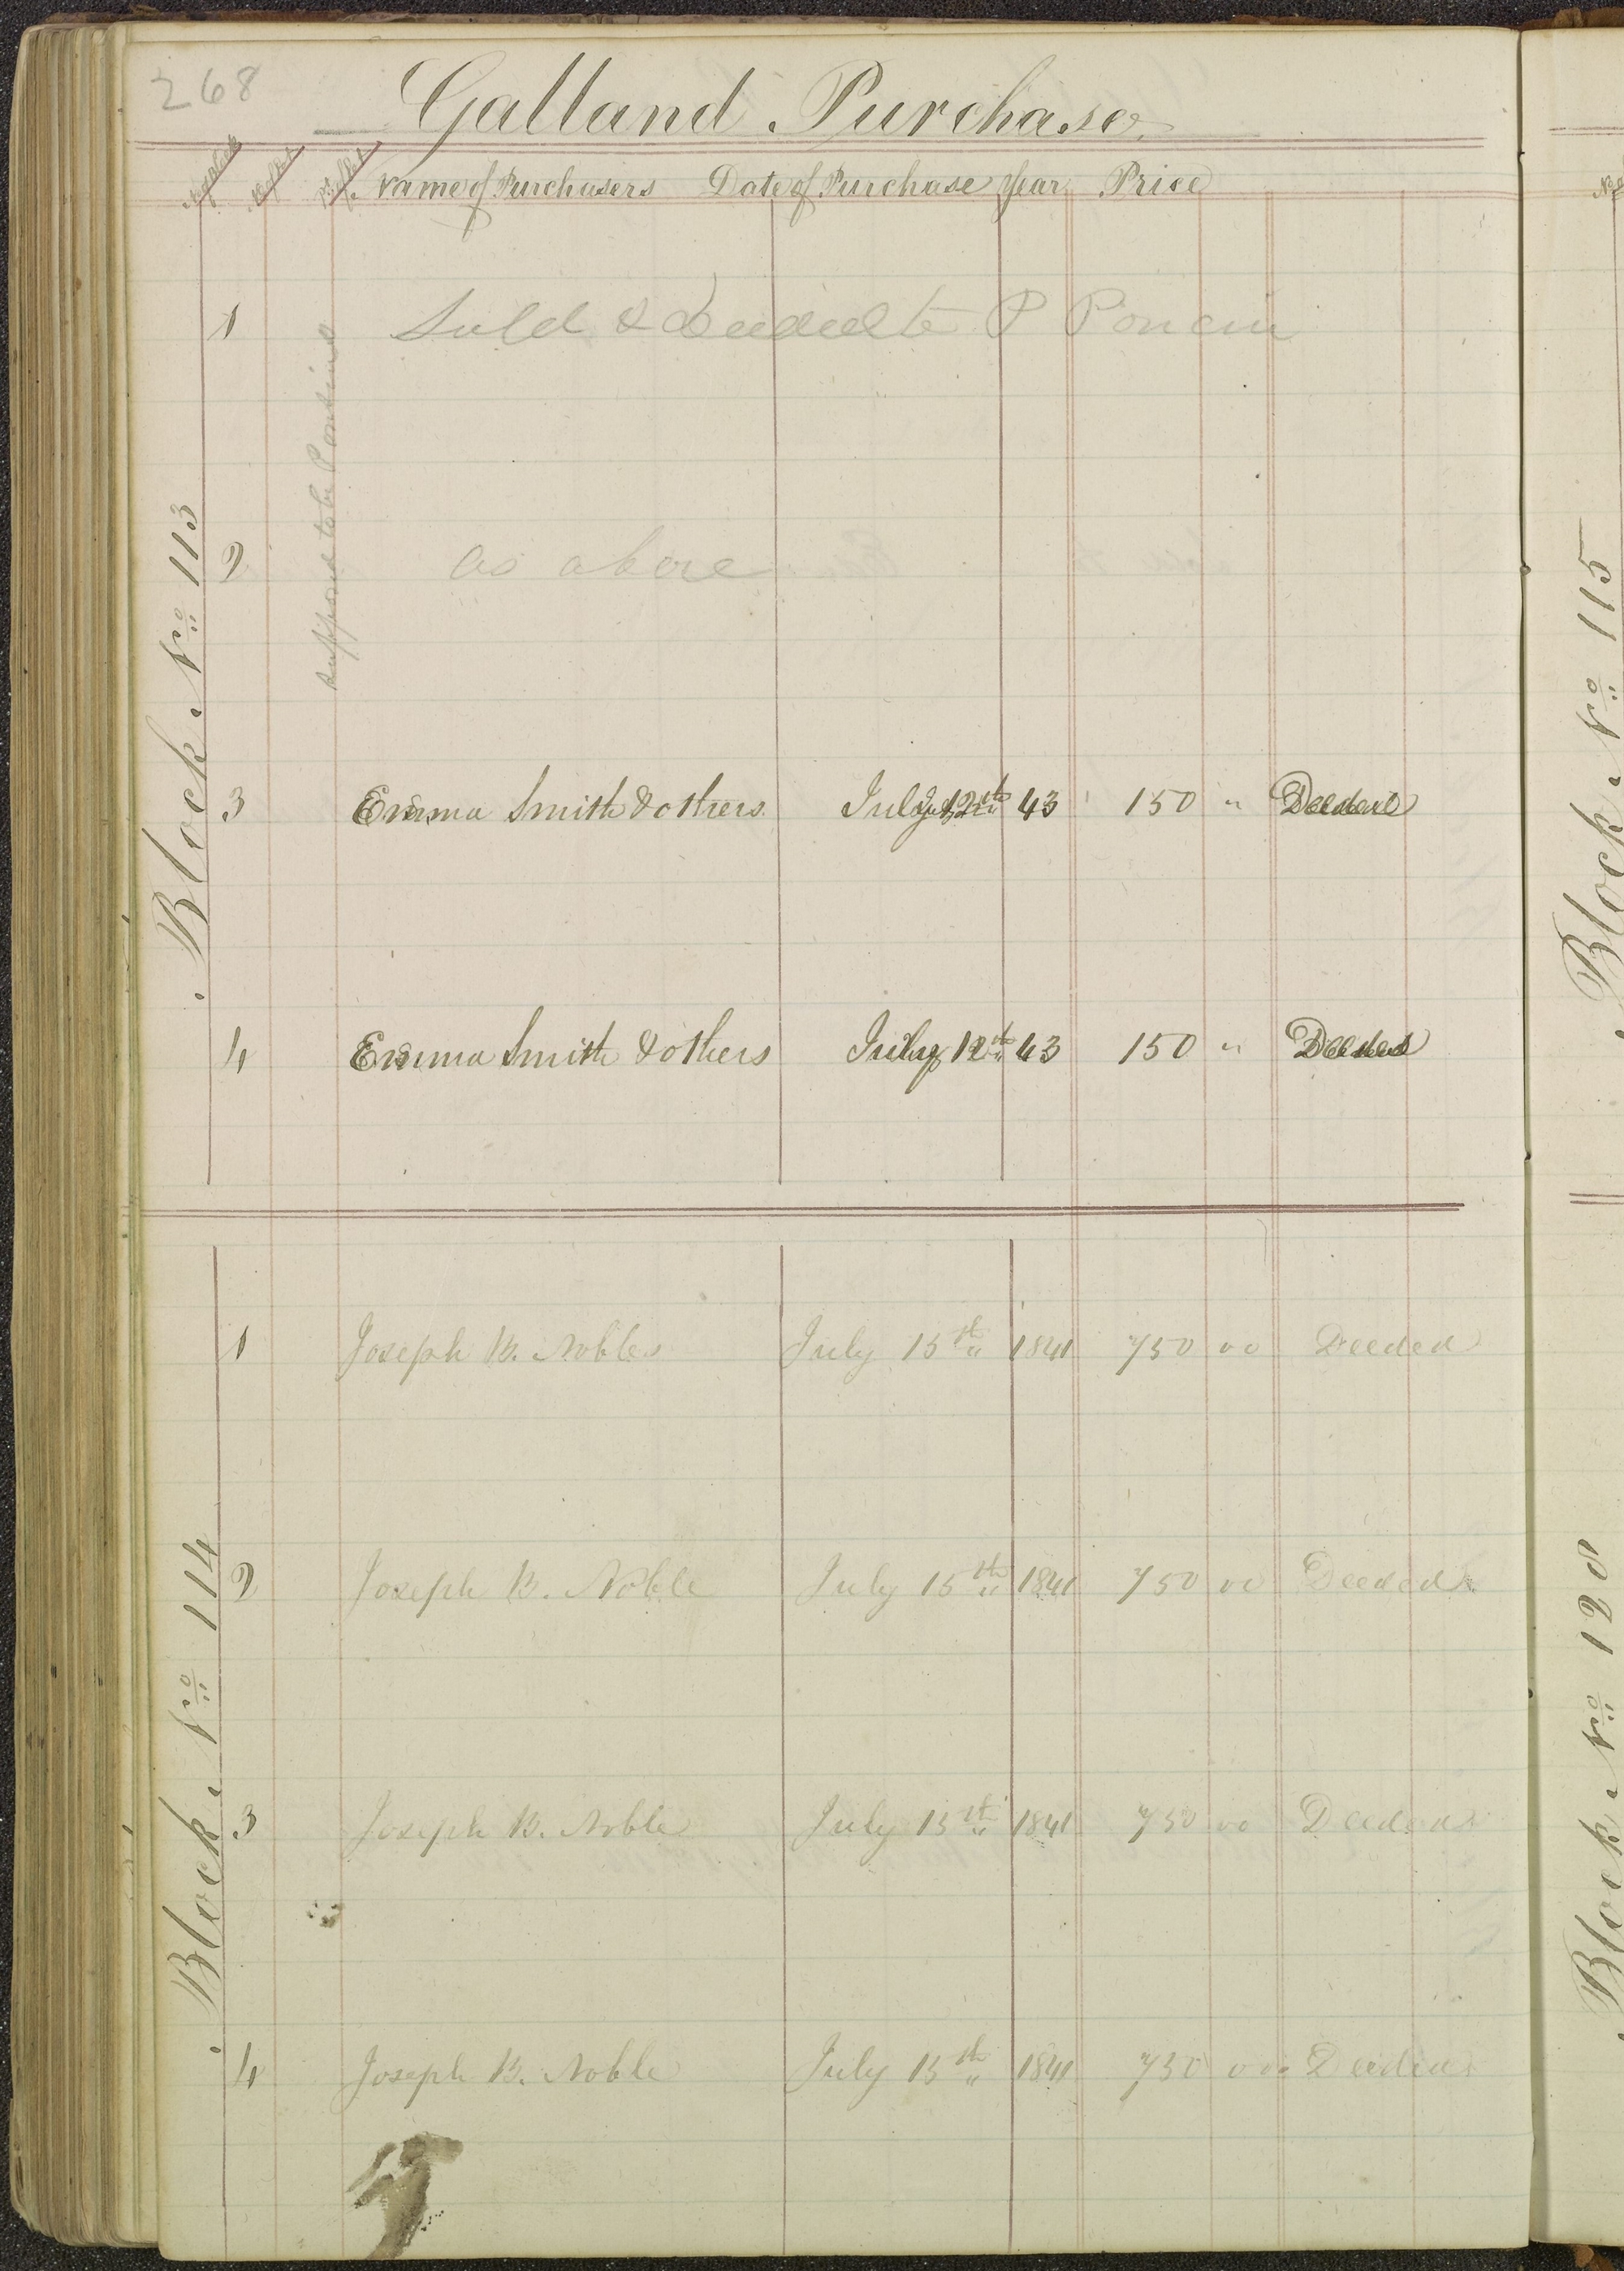 268
Galland Purchase
Name of Purchasers Date of Purchase Year Price
Block No 113
1 Sold & Deeded to P Poncin
suppose to be Ponsine
2 as above
3 Emma Smith & others July 12th 43 150 " Deeded
4 Emma Smith & others July 12th 43 150 " Deeded
Block No 114
1 Joseph B. Nobles July 15th 1841 750 00 Deeded
2 Joseph B. Noble July 15th 1841 750 00 Deeded
3 Joseph B. Noble July 15th 1841 750 00 Deeded
4 Joseph B. Noble July 15th 1841 750 00 Deeded
Block No 115
Block No 128